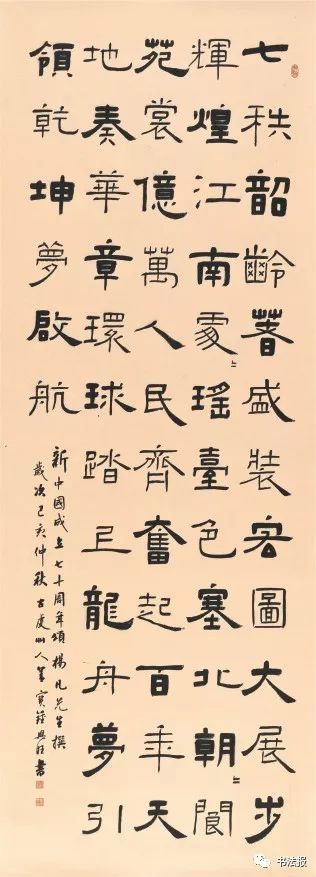 七秩韶齡著盛裝宏圖大展步
輝煌江南處〻瑤臺色塞北朝〻閬
苑裳億萬人民齊奮起百年天
地奏華章環球踏上龍舟夢引
領乾坤夢啟航
新中國成立七十周年頌楊凡先生撰
歲次己亥仲秋古虔州人書
书法报